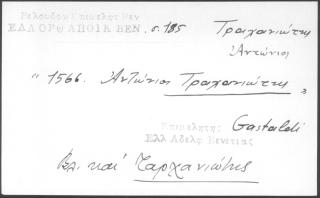 Βελουδου Επιμελητ Βεν
ΕΛΛ ΟΡΘ ΑΠΟΙΚ ΒΕΝ. σ. 185 Τραχανιώτης
Ἀντώνιος
" 1566. Ἀντώνιος Τραχανιώτης "
Επιμελητης Gastaldi
Ελλ Αδελφ Βενετιας
Βλ. καί Ταρχανιώτης